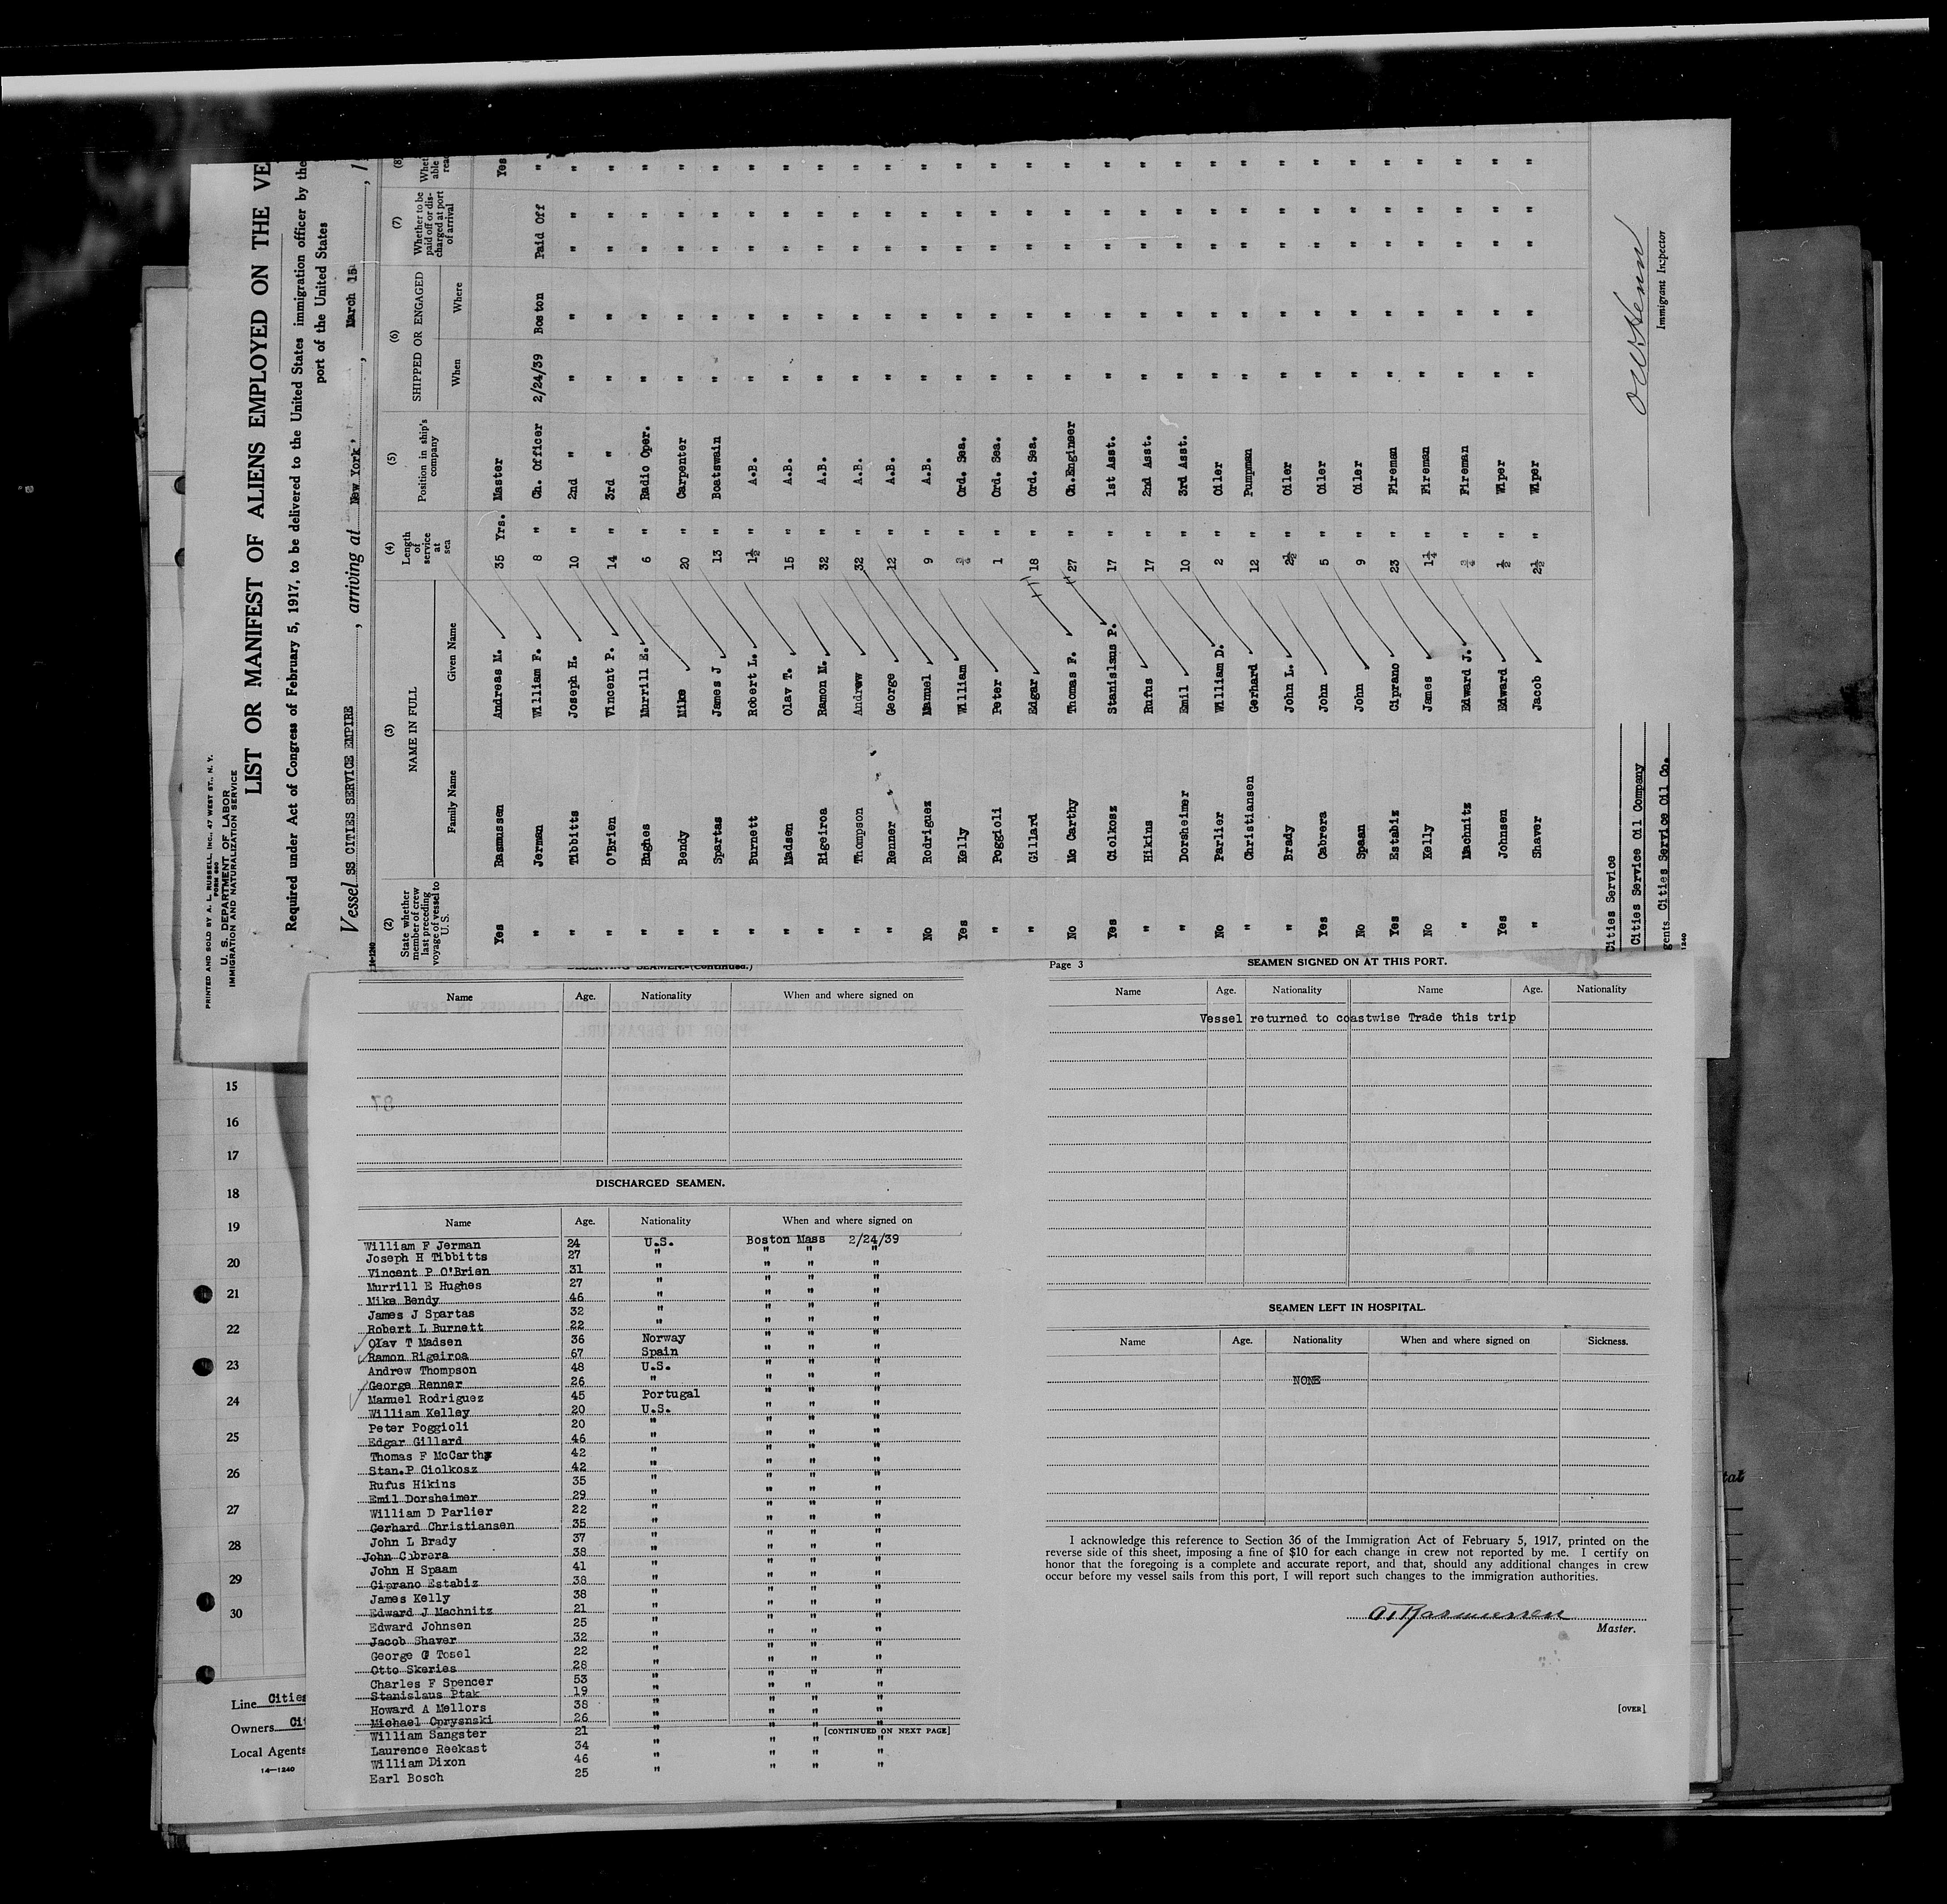 PRINTED AND SOLD BY A. L. RUSSELL, INC., 47 WEST ST., N. Y.
FORM 680
U. S. DEPARTMENT OF LABOR
IMMIGRATION AND NATURALIZATION SERVICE
LIST OR MANIFEST OF ALIENS EMPLOYED ON THE VE
Required under Act of Congress of February 5, 1917, to be delivered to the United States immigration officer by the
port of the United States
Vessel SS CITIES SERVICE EMPIRE, arriving at New York, March 15, 1
14-1240
(2) (3) (4) (5) (6) (7) (8)
State whether member of crew last preceding voyage of vessel to U. S. NAME IN FULL Length of service at sea Position in ship's company SHIPPED OR ENGAGED Whether to be paid off or discharged at port of arrival Whet able rea
Family Name Given Name When Where
Yes Rasmussen Andreas M. 35 Yrs. Master Yes
" Jerman William F. 8 " Ch. Officer 2/24/39 Boston Paid Off "
" Tibbitts Joseph H. 10 " 2nd " " " " " "
" O'Brien Vincent P. 14 " 3rd " " " " " "
" Hughes Murrill E. 6 " Radio Oper. " " " " "
" Bendy Mike 20 " Carpenter " " " " "
" Spartas James J 13 " Boatswain " " " " "
" Burnett Robert L. 1½ " A.B. " " " " "
" Madsen Olav T. 15 " A.B. " " " " "
" Rigeiroa Ramon M. 32 " A.B. " " " " "
" Thompson Andrew 32 " A.B. " " " " "
" Renner George 12 " A.B. " " " " "
No Rodriguez Manuel 9 " A.B. " " " " "
Yes Kelly William ¾ " Ord. Sea. " " " " "
" Poggioli Peter 1 " Ord. Sea. " " " " "
" Gillard Edgar 18 " Ord. Sea. " " " " "
No Mc Carthy Thomas F. 27 " Ch.Engineer " " " " "
Yes Ciolkosz Stanislaus P. 17 " 1st Asst. " " " " "
" Hikins Rufus 17 " 2nd Asst. " " " " "
" Dorsheimer Emil 10 " 3rd Asst. " " " " "
No Parlier William D. 2 " Oiler " " " " "
" Christiansen Gerhard 12 " Pumpman " " " " "
" Brady John L. 2½ " Oiler " " " " "
Yes Cabrera John 5 " Oiler " " " " "
No Spaan John 9 " Oiler " " " " "
Yes Estabiz Ciprano 23 " Fireman " " " " "
No Kelly James 1¼ " Fireman " " " " "
" Machnitz Edward J. ¾ " Fireman " " " " "
Yes Johnsen Edward ½ " Wiper " " " " "
" Shaver Jacob 2½ " Wiper " " " " "
Cities Service
Cities Service Oil Company
gents Cities Service Oil Co.
1240
Immigrant Inspector
DESERTING SEAMEN.-(Continued.)
Name Age. Nationality When and where signed on
DISCHARGED SEAMEN.
Name Age. Nationality When and where signed on
William F Jerman 24 U.S. Boston Mass 2/24/39
Joseph H Tibbitts 27 " " " "
Vincent P O'Brien 31 " " " "
Murrill E Hughes 27 " " " "
Mike Bendy 46 " " " "
James J Spartas 32 " " " "
Robert L Burnett 22 " " " "
Olav T Madsen 36 Norway " " "
Ramon Rigeiroa 67 Spain " " "
Andrew Thompson 48 U.S. " " "
George Renner 26 " " " "
Manuel Rodriguez 45 Portugal " " "
William Kelley 20 U.S. " " "
Peter Poggioli 20 " " " "
Edgar Gillard 46 " " " "
Thomas F McCarthy 42 " " " "
Stan.P Ciolkosz 42 " " " "
Rufus Hikins 35 " " " "
Emil Dorsheimer 29 " " " "
William D Parlier 22 " " " "
Gerhard Christiansen 35 " " " "
John L Brady 37 " " " "
John Cabrera 38 " " " "
John H Spaam 41 " " " "
Ciprano Estabiz 38 " " " "
James Kelly 38 " " " "
Edward J Machnitz 21 " " " "
Edward Johnsen 25 " " " "
Jacob Shaver 32 " " " "
George G Tosel 22 " " " "
Otto Skeries 28 " " " "
Charles F Spencer 53 " " " "
Stanislaus Ptak 19 " " " "
Howard A Mellors 38 " " " "
Michael Cprysnski 26 " " " "
William Sangster 21 " " " "
[CONTINUED ON NEXT PAGE]
Laurence Reekast 34 " " " "
William Dixon 46 " " " "
Earl Bosch 25 " " " "
Page 3
SEAMEN SIGNED ON AT THIS PORT.
Name Age. Nationality Name Age. Nationality
Vessel returned to coastwise Trade this trip
SEAMEN LEFT IN HOSPITAL.
Name Age. Nationality When and where signed on Sickness.
NONE
I acknowledge this reference to Section 36 of the Immigration Act of February 5, 1917, printed on the
reverse side of this sheet, imposing a fine of $10 for each change in crew not reported by me. I certify on
honor that the foregoing is a complete and accurate report, and that, should any additional changes in crew
occur before my vessel sails from this port, I will report such changes to the immigration authorities.
A. Rasmussen
Master.
[OVER]
15
16
17
18
19
20
21
22
23
24
25
26
27
28
29
30
Line Cities
Owners Cit
Local Agents
14-1240
tat